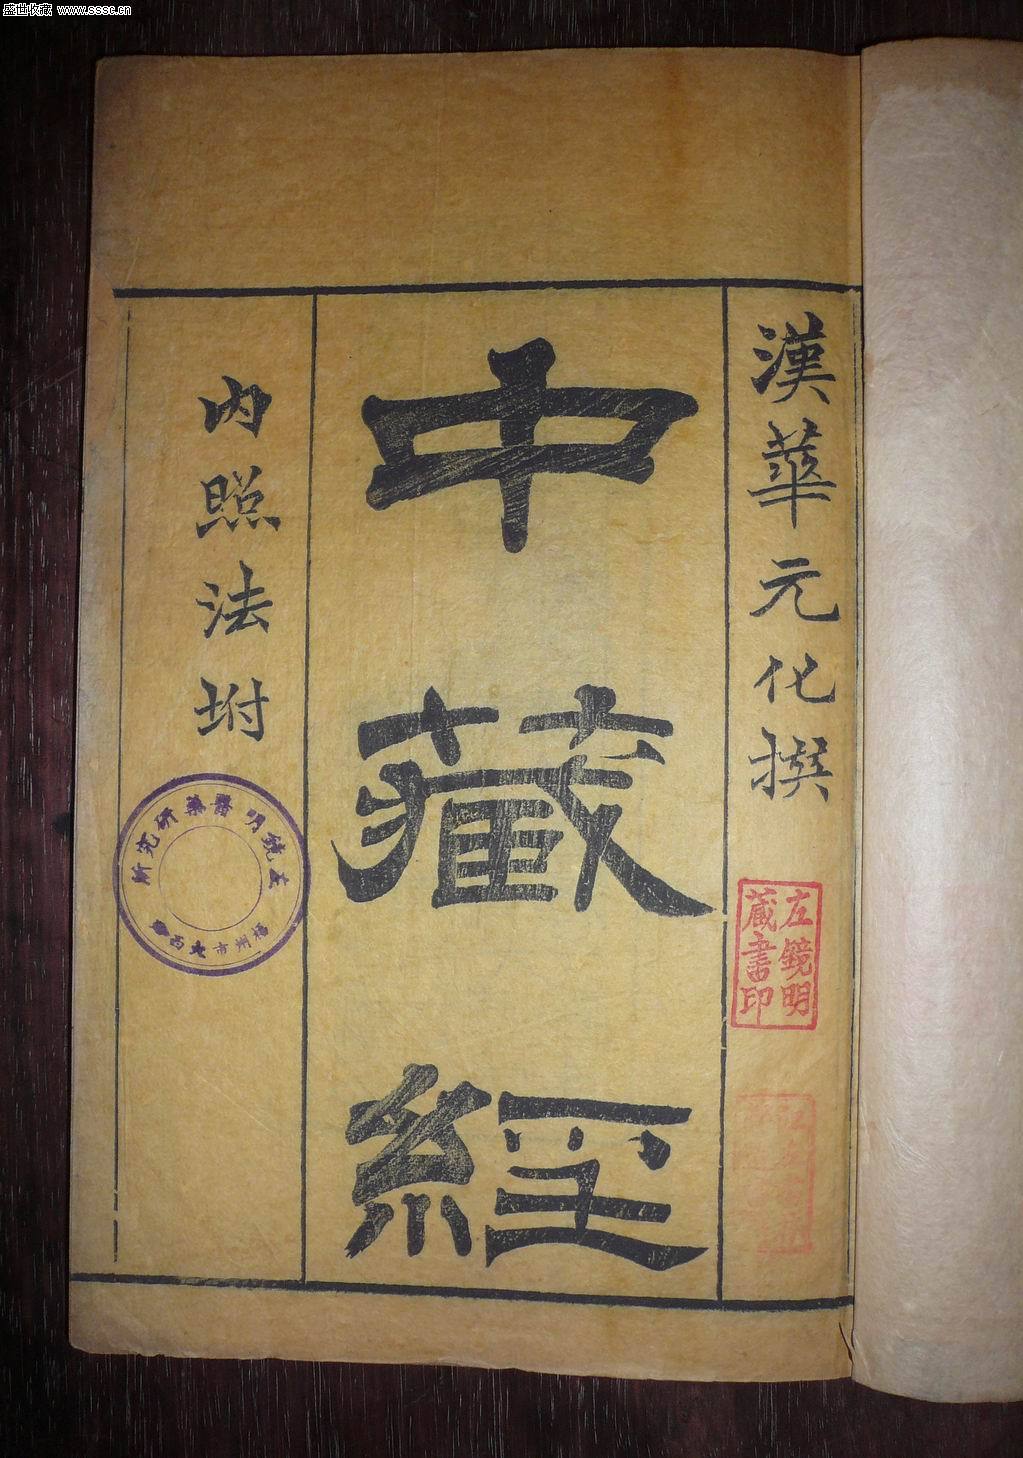 盛世收藏 www.sssc.cn
漢華元化撰
中藏經
内照法坿
左鏡明
藏書印
左鏡明醫藥研究所